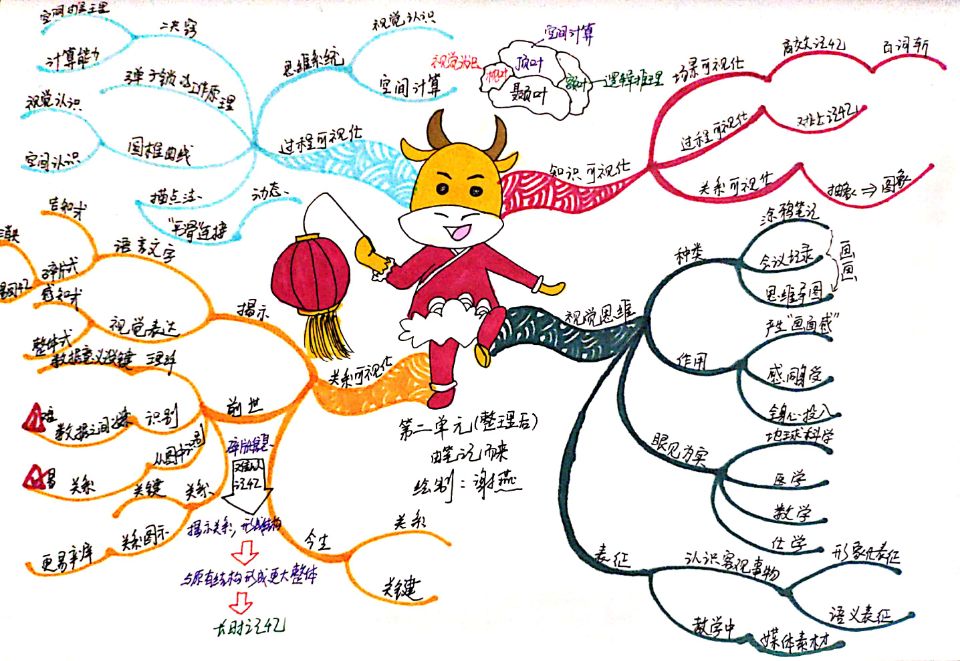 第二单元(整理后)
由笔记而来
绘制:谢燕
过程可视化
思维系统
视觉认识
空间计算
诀窍
空间的推理
计算能力
弹子锁工作原理
围棍曲线
视觉认识
空间认识
描点法
动态
"平滑"连接
空间计算
视觉认识
枕叶
顶叶
额叶
逻辑推理
颞叶
知识可视化
场景可视化
高效记忆
百词斩
过程可视化
对比记忆
关系可视化
抽象⇒图象
视觉思维
种类
涂鸦笔记
会议纪录
思维导图
画
画
作用
产生"画面感"
感同身受
全身心投入
眼见为实
地球科学
医学
数学
化学
表征
认识客观事物
形象化表征
语义表征
教学中
媒体素材
关系可视化
揭示
语言文字
告知式
碎片式
视觉表达
感知式
整体式
前世
数据意义没键
理解
识别
数据之间缘
从图中识别
关系
关系
关键
关系图示
更易牢库
今生
关系
关键
碎片信息
难以记忆
揭示关系,形成结构
与原有结构形成更大整体
长时记忆